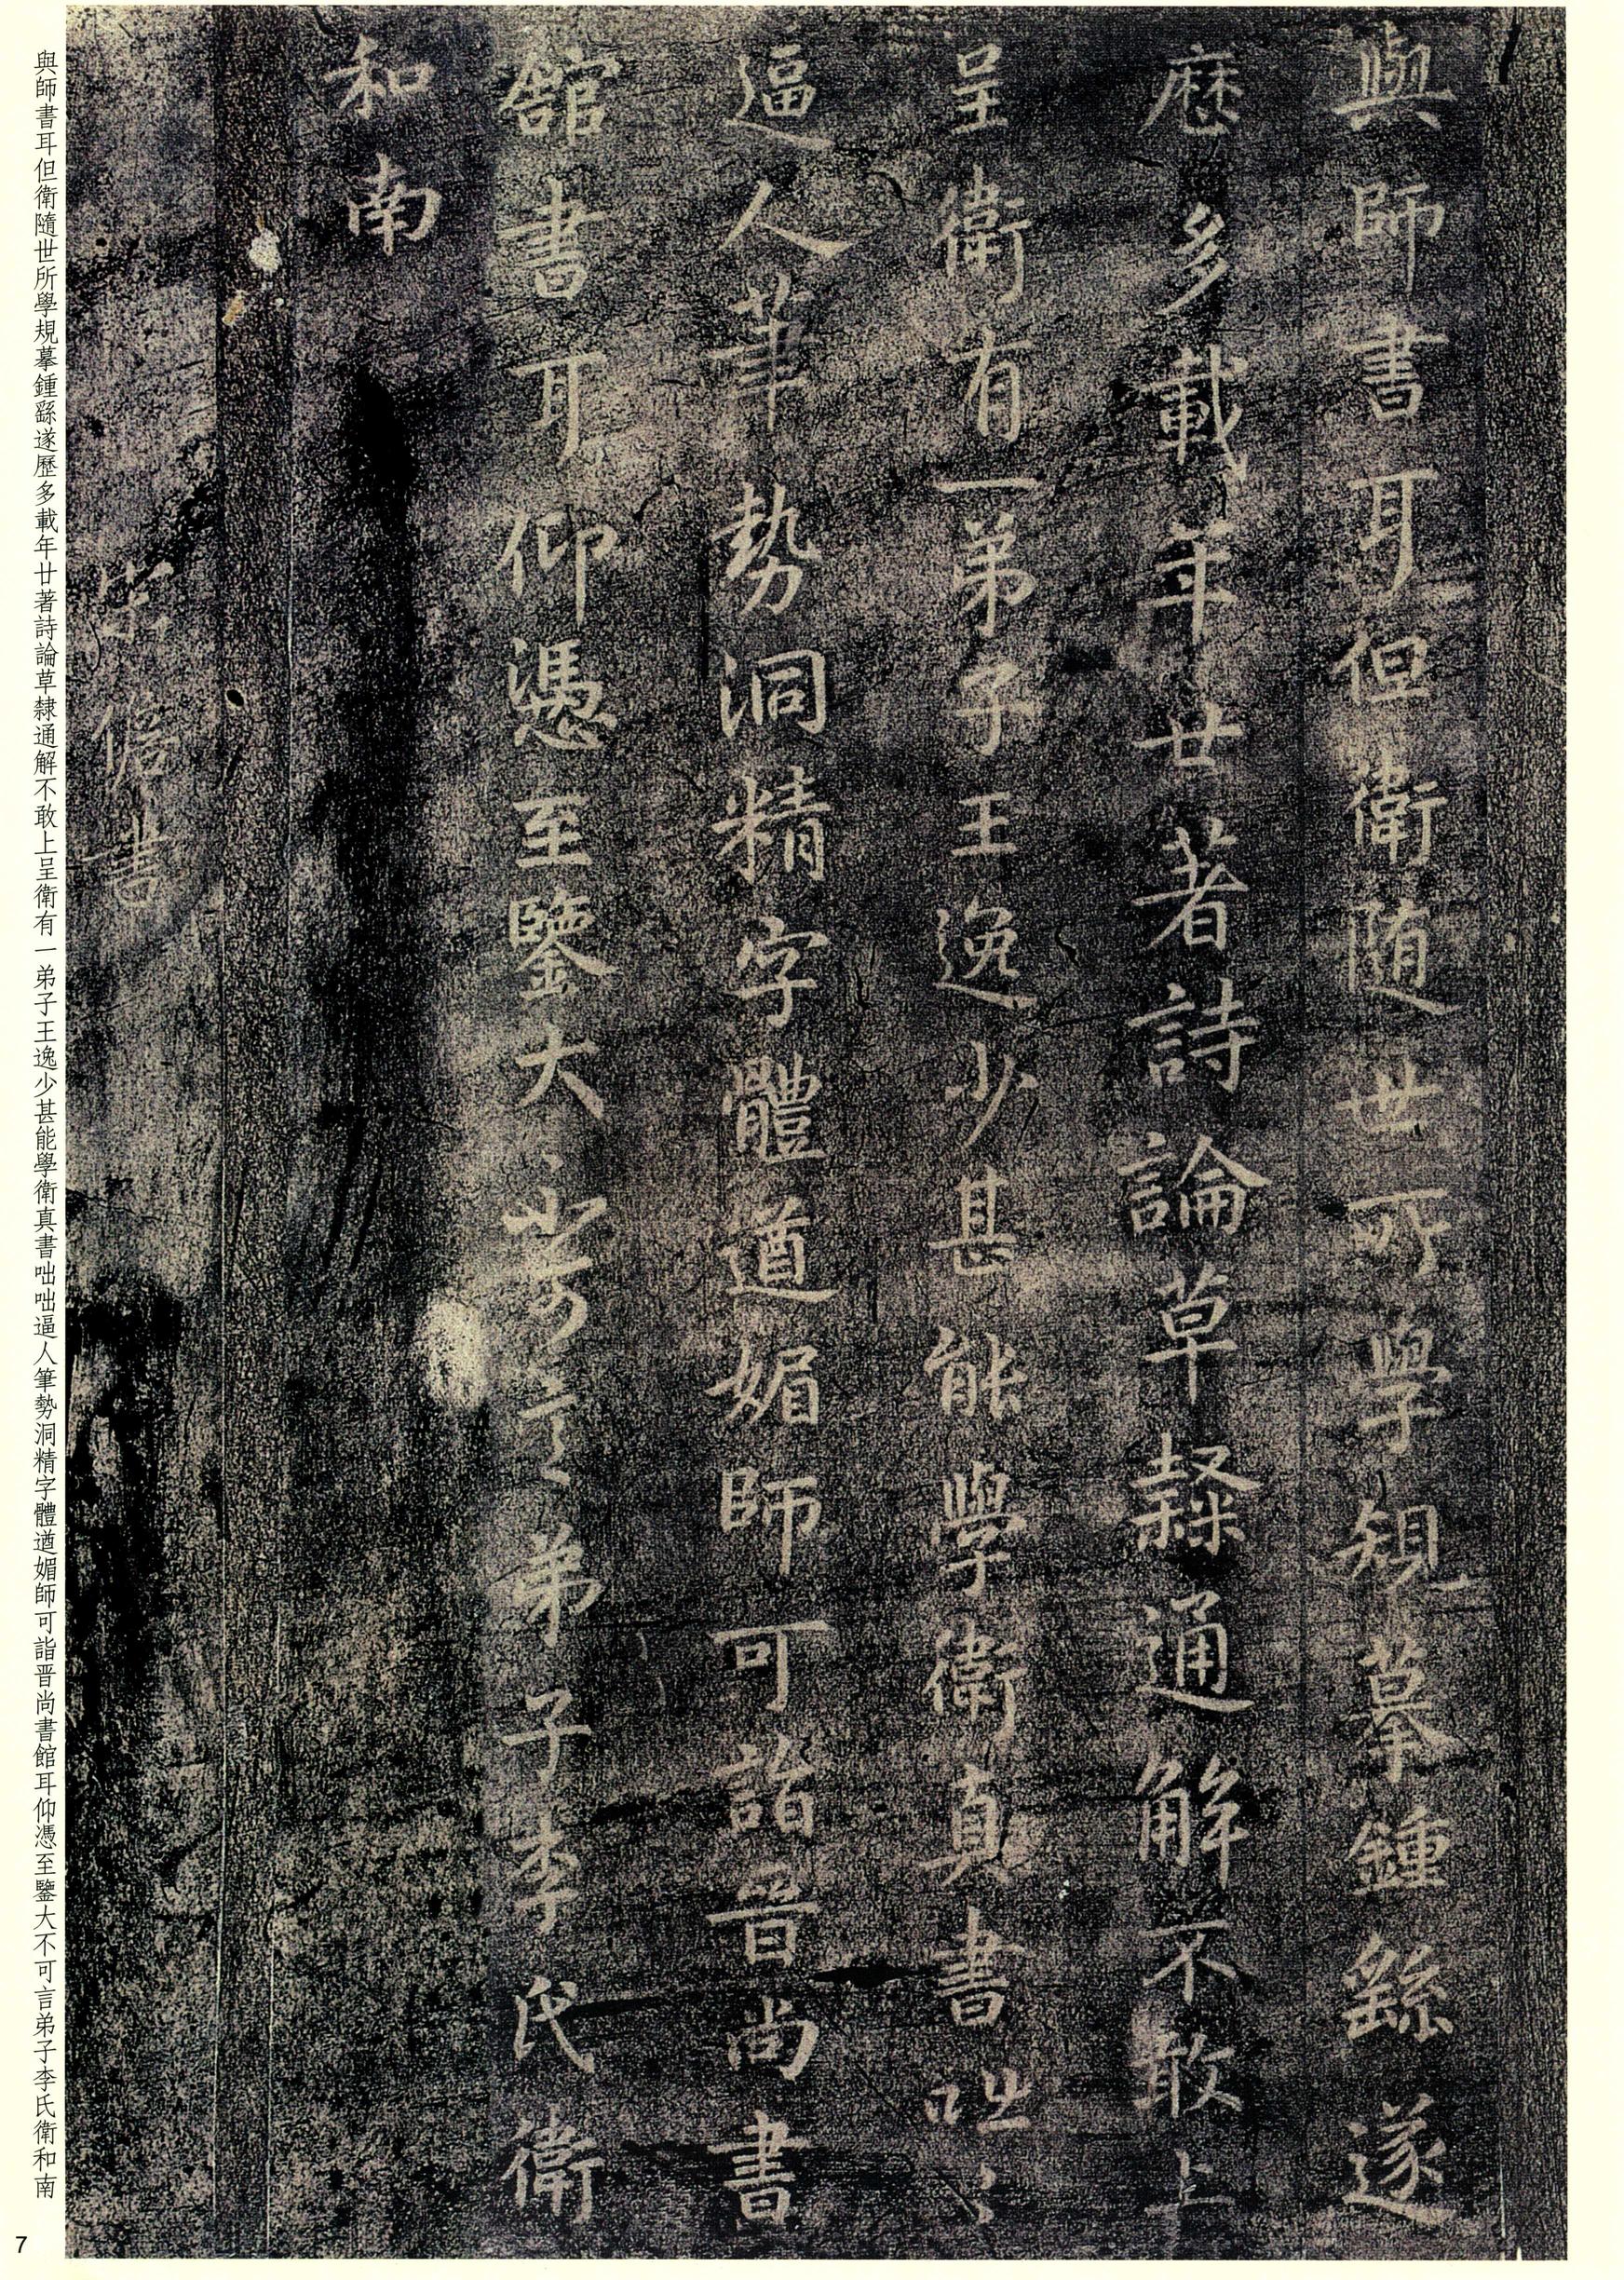 與師書耳但衛隨世所學規摹鍾繇遂
歷多載年廿著詩論草隸通解不敢上
呈衛有一弟子王逸少甚能學衛真書咄〻
逼人筆勢洞精字體遒媚師可詣晉尚書
館書耳仰憑至鑒大不可言弟子李氏衛
和南
宋儋書
與師書耳但衛隨世所學規摹鍾繇遂歷多載年廿著詩論草隸通解不敢上呈衛有一弟子王逸少甚能學衛真書咄咄逼人筆勢洞精字體遒媚師可詣晋尚書館耳仰憑至鑒大不可言弟子李氏衛和南
7